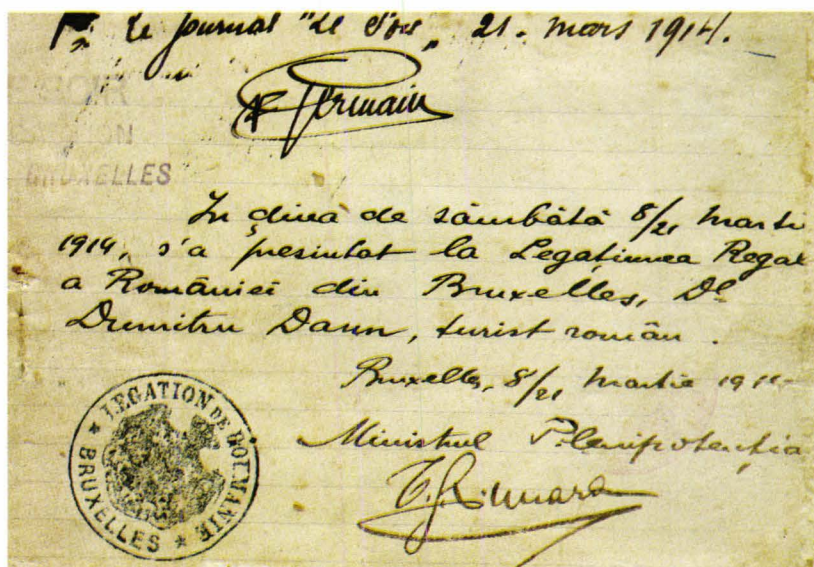 Pr le journal "Le Soir" 21. mars 1914.
Germain
BRUXELLES
In diua de sâmbătă 8/21 Marti
1914, s'a presintat la Legațiunea Regal
a României din Bruxelles, Dl
Dumitru Dann, turist român.
Bruxelles, 8/21 Martie 191
Ministrul Plenipotenția
LEGATION DE ROUMANIE
* BRUXELLES *